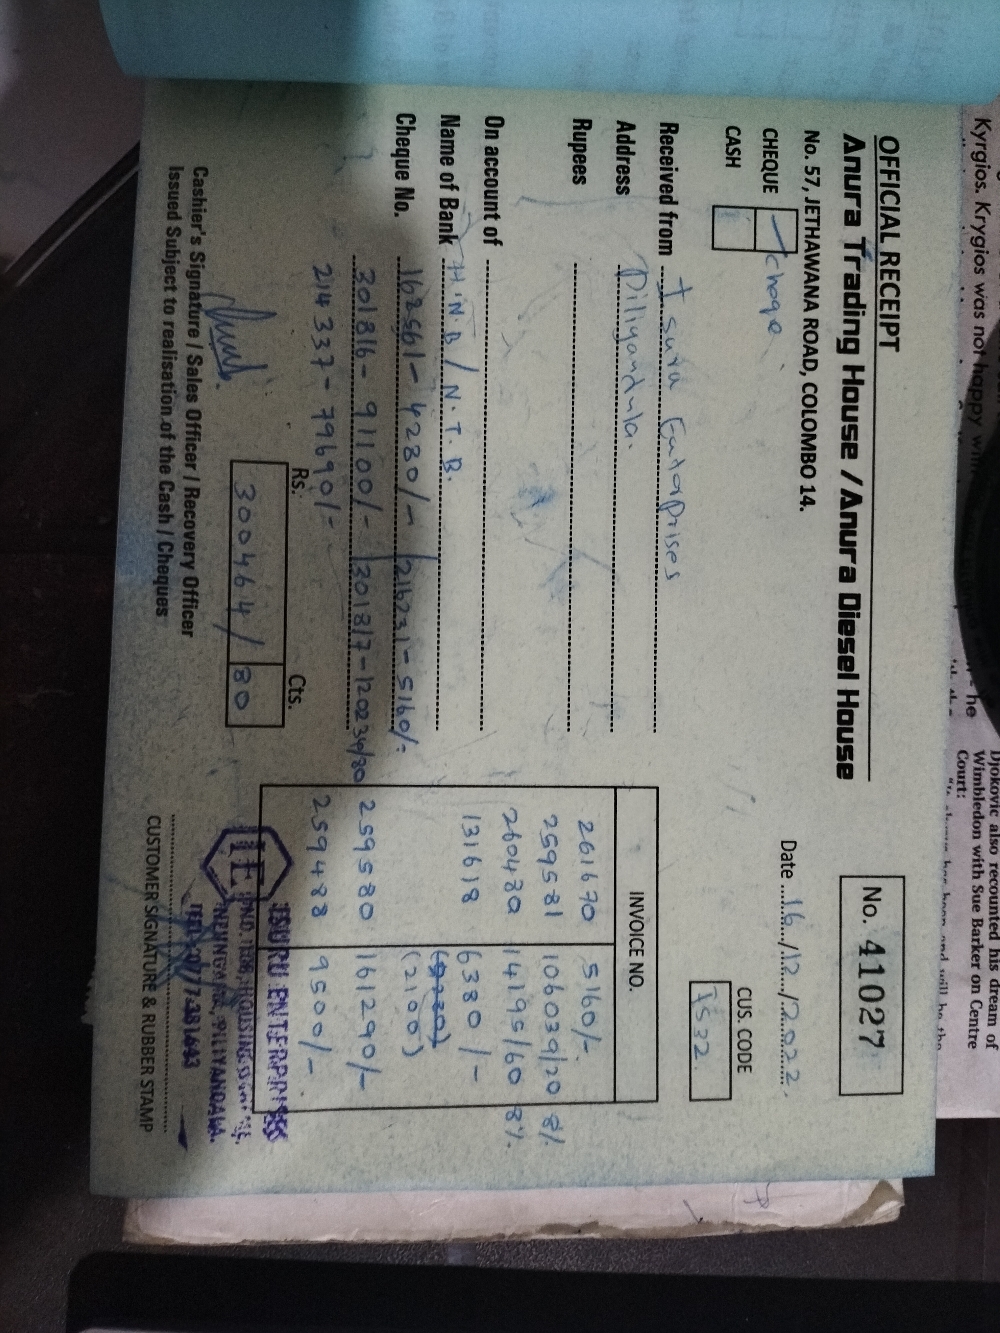 OFFICIAL RECEIPT
Anura Trading House / Anura Diesel House
No. 57, JETHAWANA ROAD, COLOMBO 14.
No. 41027
CHEQUE
CASH
Date 16/12/2022
CUS. CODE
Received from Isuru Enterprises
Address Piliyandala.
Rupees
On account of
Name of Bank H.N.B / N.T.B.
Cheque No. 162561 - 4280/- 216231 - 5160/-
301816 - 91100/- 301817 - 120234/80
214337 - 79690/-
INVOICE NO.
261670 5160/-
259581 106039/20 8%
260480 14195/60 8%
131618 6380/-
(2100)
259580 161290/-
259488 9500/-
Rs. Cts.
300464/ 80
Cashier's Signature / Sales Officer / Recovery Officer
Issued Subject to realisation of the Cash / Cheques
IE
ISURU ENTERPRISES
PILIYANDALA.
CUSTOMER SIGNATURE & RUBBER STAMP
Kyrgios. Krygios was not happy
he
Djokovic also recounted his dream of
Wimbledon with Sue Barker on Centre
Court: